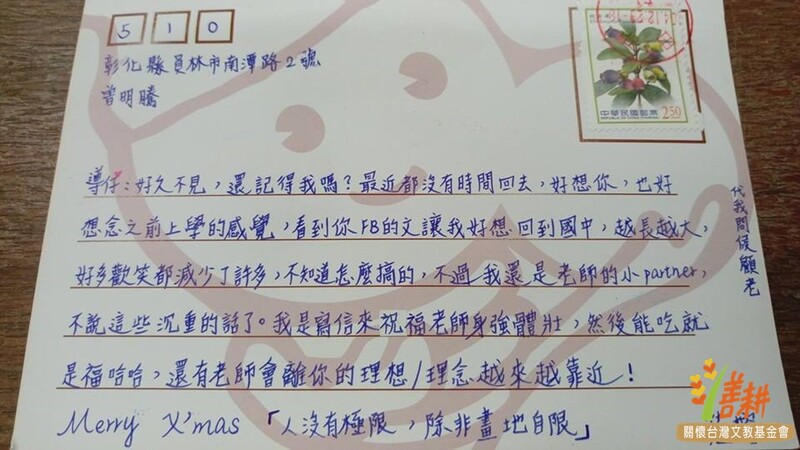 510
彰化縣員林市南潭路2號
曾明騰
中華民國郵票
REPUBLIC OF CHINA (TAIWAN)
250
導仔：好久不見，還記得我嗎？最近都沒有時間回去，好想你，也好
想念之前上學的感覺，看到你FB的文讓我好想回到國中，越長越大，
好多歡笑都減少了許多，不知道怎麼搞的，不過我還是老師的小partner，
不說這些沉重的話了。我是寫信來祝福老師身強體壯，然後能吃就
是福哈哈，還有老師會離你的理想/理念越來越靠近！
Merry X'mas 「人沒有極限，除非畫地自限」
代我問候顧老
善耕
關懷台灣文教基金會